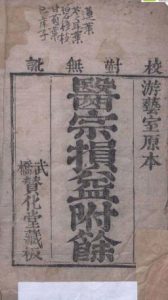 校對無訛
游藝室原本
醫宗損益附餘
武橋贊化堂藏板
蓮葉